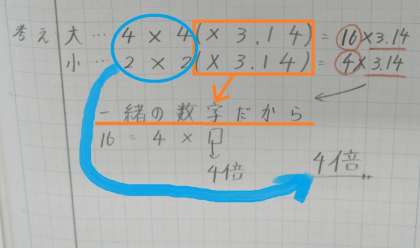 考え 大…4×4(×3.14)=16×3.14
小…2×2(×3.14)=4×3.14
一緒の数字だから
16=4×□
4倍
4倍